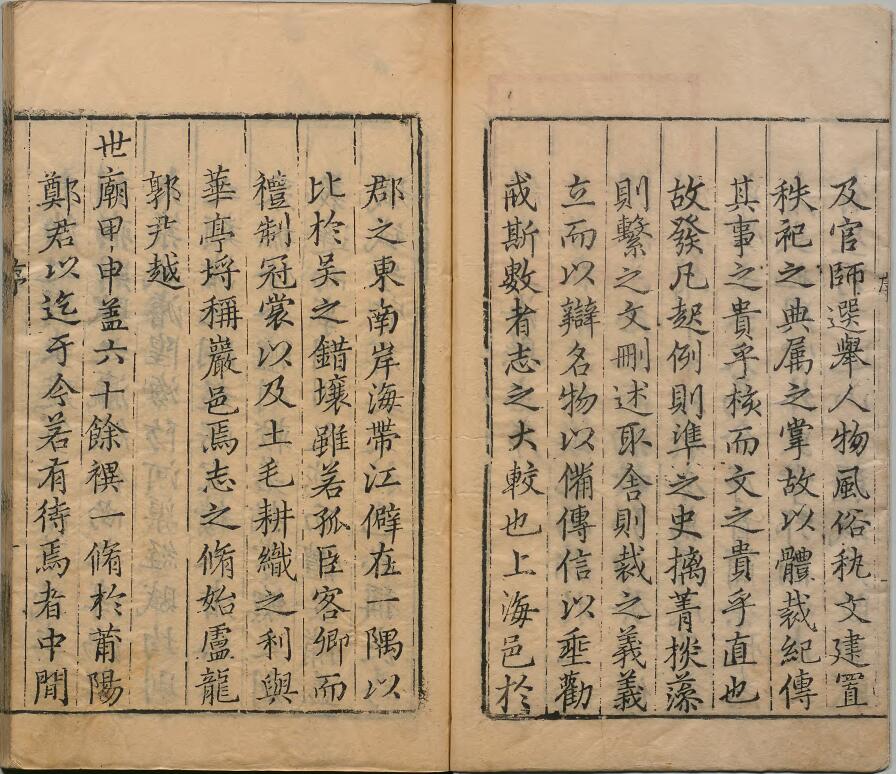 及官師選舉人物風俗秇文建置
秩祀之典属之掌故以體裁紀傳
其事之貴乎核而文之貴乎直也
故發凡起例則準之史摛菁掞藻
則繫之文刪述取舍則裁之義義
立而以辯名物以備傳信以垂勸
戒斯數者志之大較也上海邑於
郡之東南岸海帶江僻在一隅以
比於吴之錯壤雖若孤臣客卿而
禮制冠裳以及土毛耕織之利與
華亭埒稱巖邑焉志之脩始盧龍
郭尹越
世廟甲申盖六十餘禩一脩於莆陽
鄭君以迄于今若有待焉者中間
序